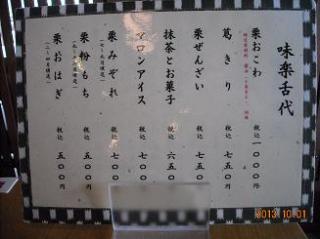 味楽舌代
栗おこわ 税込 一〇〇〇円
葛きり 税込 七〇〇円
栗ぜんざい 税込 七〇〇円
抹茶とお菓子 税込 六五〇円
マロンアイス 税込 五〇〇円
栗みぞれ 税込 七〇〇円
栗粉もち 税込 五〇〇円
栗おはぎ 税込 五〇〇円
2013 10 01